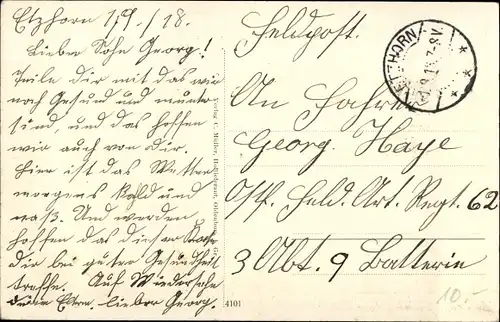 Etzhorn 1/9./18.
Lieber Sohn Georg!
Teile Dir mit das wir
noch Gesund und munter
sind, und das hoffen
wir auch von Dir.
Hier ist das Wetter
morgens Kald und
naß. Und werden
hoffen das diese Karte
Dir bei guter Gesundheit
treffe. Auf Wiedersehn
deine Eltern. lieber Georg.
Verlag C. Müller, Hoflieferant, Oldenburg
4101
Feldpost.
ETZHORN
1.9.18. 7-8V.
An Fahrer
Georg Haye
Ostf. Feld. Art. Regt. 62
3 Abt. 9 Batterie
10.-